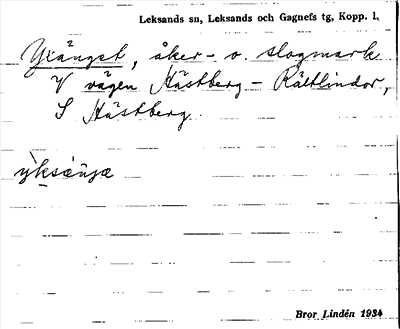 Leksands sn, Leksands och Gagnefs tg, Kopp. l.
Yxänget, åker- o. slogmark
V vägen Hästberg – Rältlindor,
S Hästberg.
Bror Lindén 1934